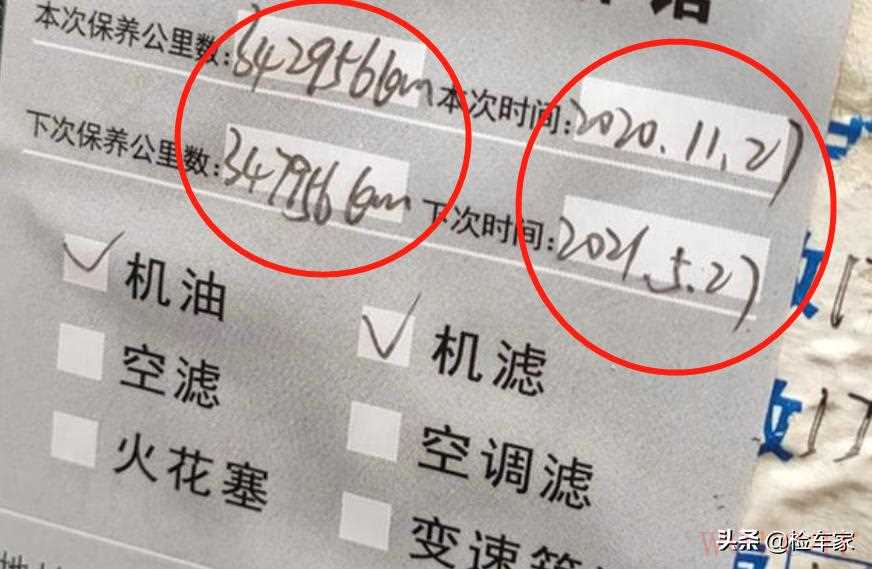 本次保养公里数:342956km 本次时间:2020.11.27
下次保养公里数:347956km 下次时间:2021.5.27
机油 机滤
空滤 空调滤
火花塞 变速箱
头条 @检车家